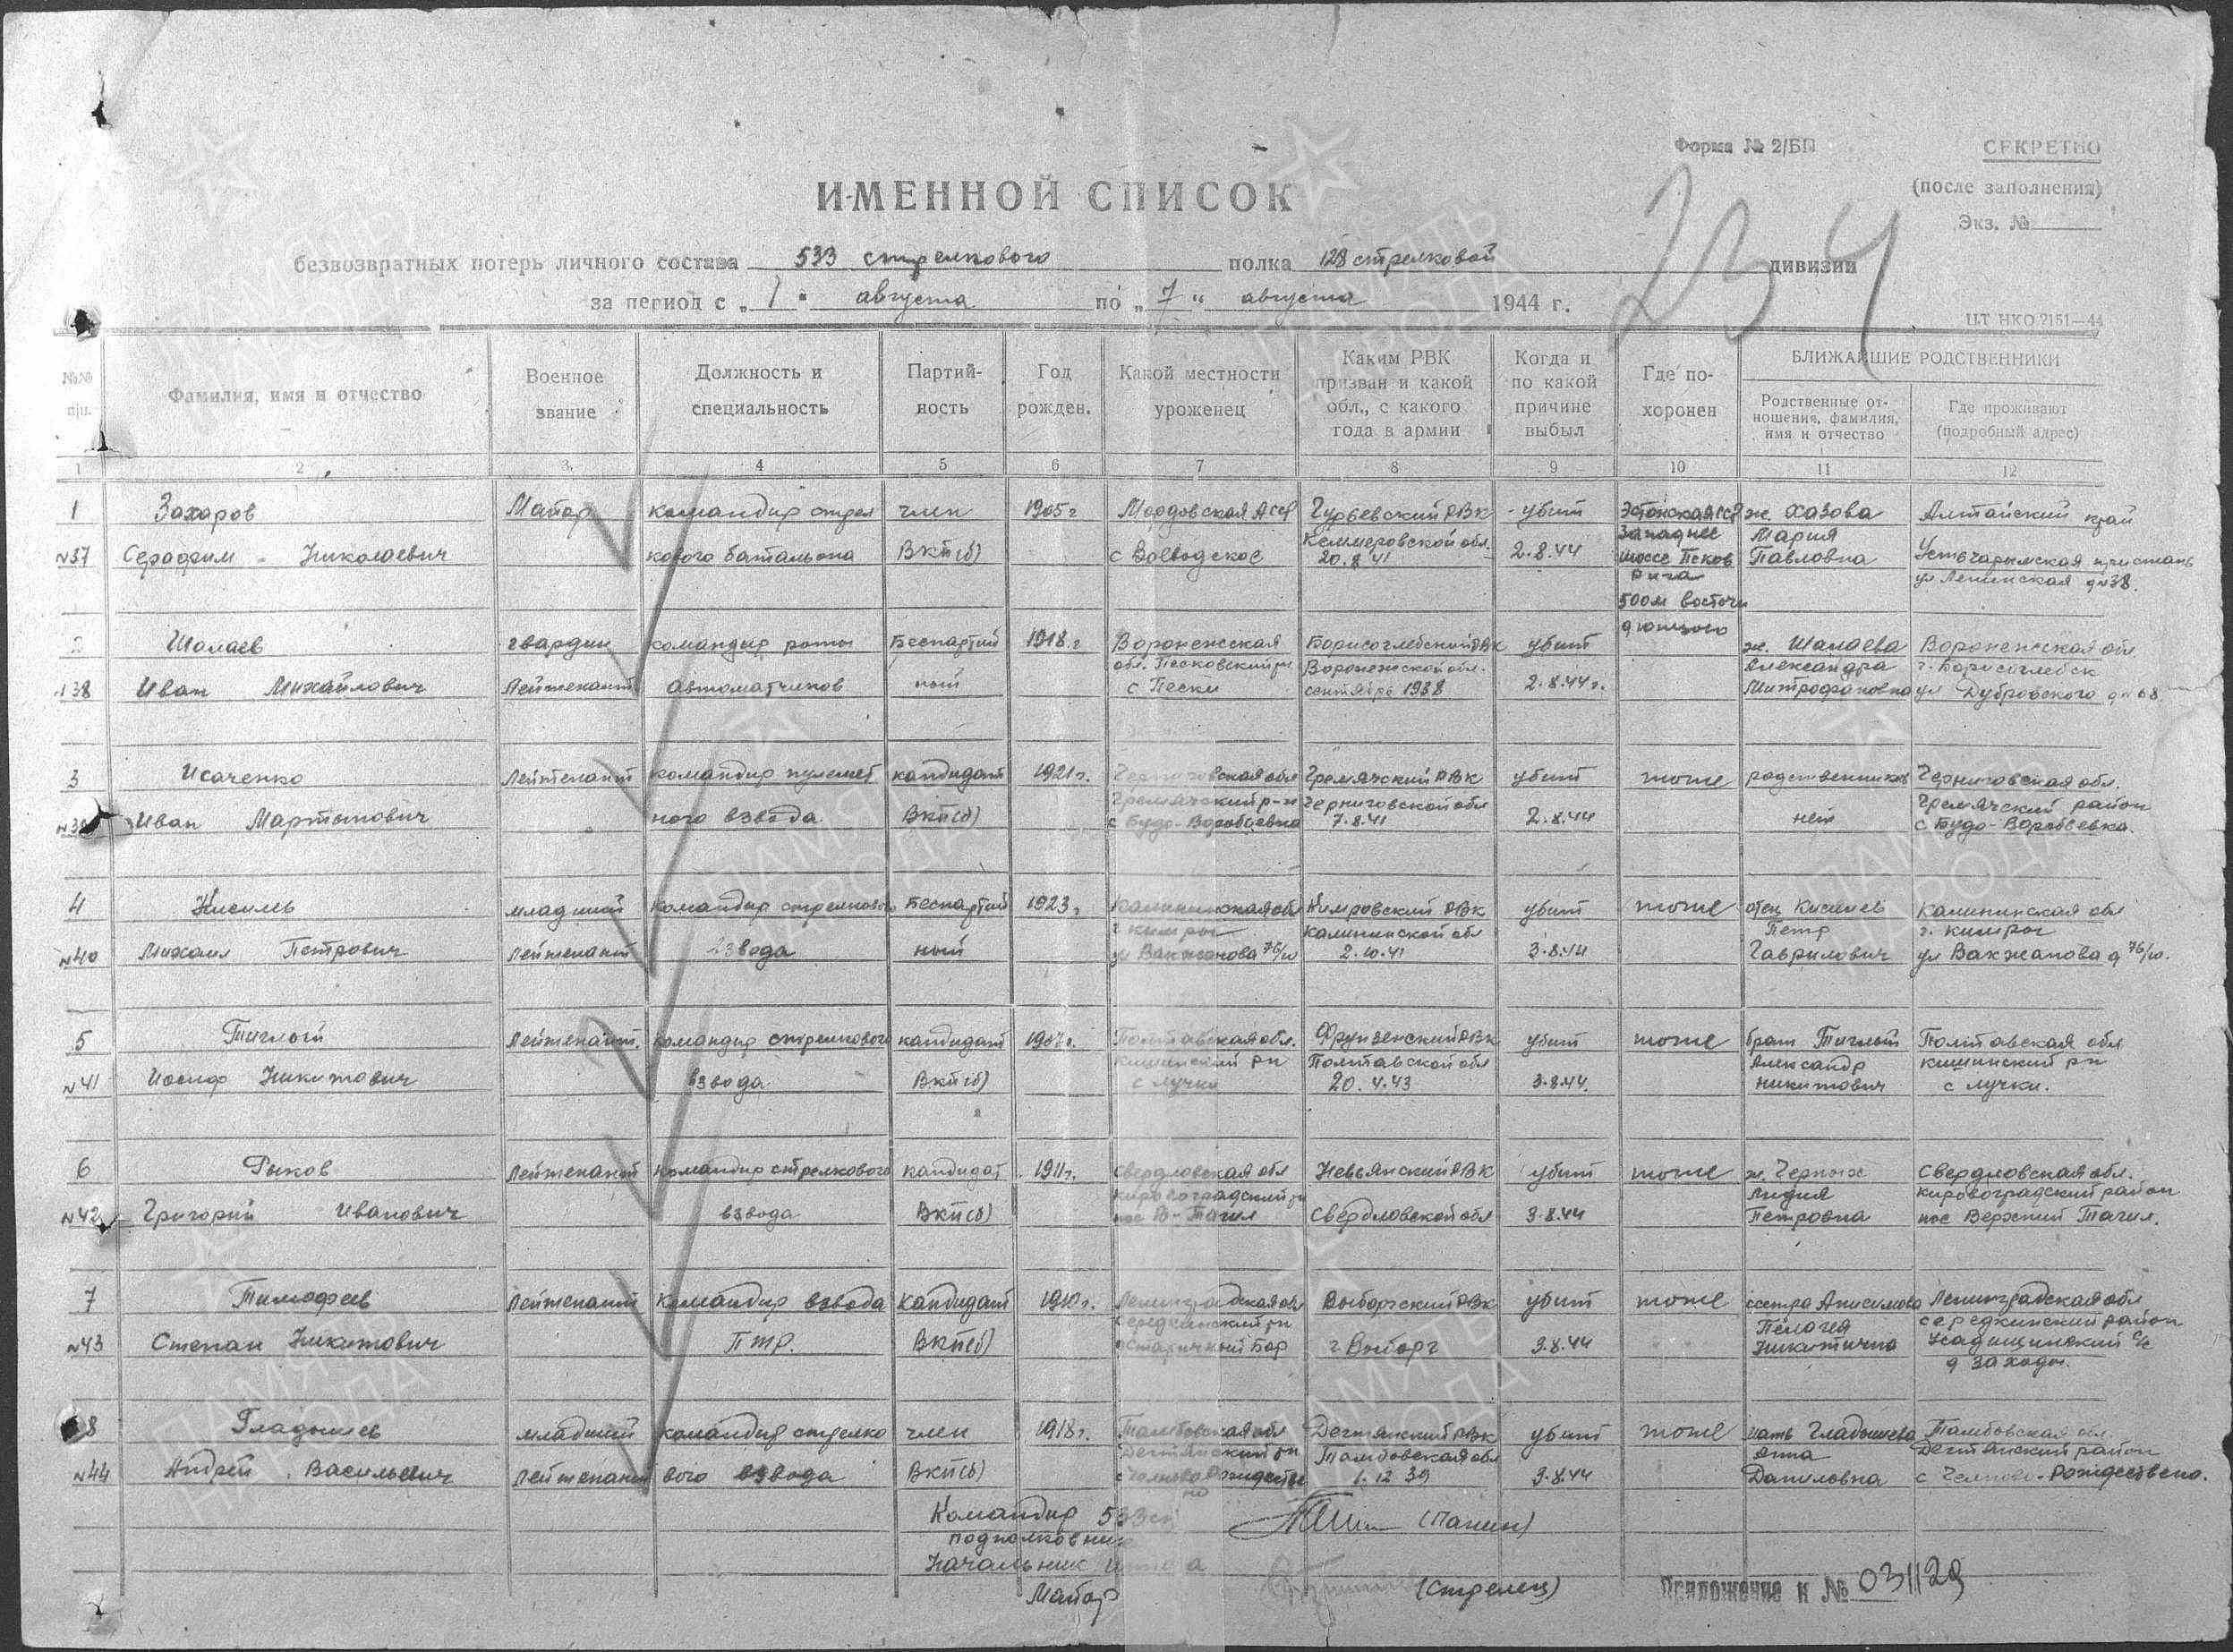 Форма № 2/БП
СЕКРЕТНО
(после заполнения)
Экз. №
234
ИМЕННОЙ СПИСОК
безвозвратных потерь личного состава 533 стрелкового полка 128 стрелковой дивизии
за период с „1“ августа по „7“ августа 1944 г.
ЦТ НКО 2151—44
№№ п/п. Фамилия, имя и отчество Военное звание Должность и специальность Партий- ность Год рожден. Какой местности уроженец Каким РВК призван и какой обл., с какого года в армии Когда и по какой причине выбыл Где по- хоронен БЛИЖАЙШИЕ РОДСТВЕННИКИ
Родственные от- ношения, фамилия, имя и отчество Где проживают (подробный адрес)
1 2 3 4 5 6 7 8 9 10 11 12
1 Захаров Майор командир стрел член 1905 г Мордовская АССР Гурьевский РВК убит Эстонская ССР ж. Хазова Алтайский край
Западнее Мария
№37 Серафим Николаевич кового батальона ВКП(б) с Воеводское Кемеровской обл. 20.8.41 2.8.44 шоссе Псков Павловна Устьчарышская пристань
Рига ул Ленинская д №38.
500м восточн
д
2 Шалаев гвардии командир роты Беспартий 1918 г Воронежская Борисоглебский РВК убит ж. Шалаева Воронежская обл
обл. Песковский рн Воронежской обл. Александра г. Борисоглебск
№38 Иван Михайлович Лейтенант автоматчиков ный с Пески сентябрь 1938 2.8.44 г. Митрофановна ул Дубровского д №68
3 Исаченко Лейтенант командир пулемет кандидат 1921 г. Черниговская обл Гремячский РВК убит тоже родственников Черниговская обл.
Гремячский р-н Черниговской обл Гремячский район
№39 Иван Мартынович ного взвода ВКП(б) с Будо-Воробьевка 7.8.41 2.8.44 нет с Будо-Воробьевка.
4 Кисилев младший командир стрелкового Беспартий 1923 г Калининская обл Кимровский РВК убит тоже отец Кисилев Калининская обл
г. Кимры Калининской обл Петр г. Кимры
№40 Михаил Петрович Лейтенант взвода ный ул Вакжанова 76/10 2.10.41 3.8.44 Гаврилович ул Вакжанова д 76/10.
5 Тиглый Лейтенант. командир стрелкового кандидат 1907 г. Полтавская обл. Фрунзенский РВК убит тоже брат Тиглый Полтавская обл
кишинский рн Полтавской обл Александр кишинский рн
№41 Иосиф Никитович взвода ВКП(б) с Лучки 20.4.43 3.8.44. Никитович с Лучки.
6 Рыков Лейтенант командир стрелкового кандидат 1911 г. Свердловская обл Невьянский РВК убит тоже ж. Черных Свердловская обл.
кировоградский рн Лидия кировоградский район
№42 Григорий Иванович взвода ВКП(б) пос В-Тагил Свердловской обл 3.8.44 Петровна пос Верхний Тагил.
7 Тимофеев Лейтенант командир взвода кандидат 1910 г. Ленинградская обл Выборгский РВК убит тоже сестра Анисимова Ленинградская обл
середкинский рн Пелагея середкинский район
№43 Степан Никитович ПТР. ВКП(б) Бор г. Выборг 3.8.44 Никитична Усадищинский с/с
д Заходы.
8 Гладышев младший командир стрелко член 1918 г. Тамбовская обл Дегтянский РВК убит тоже мать Гладышева Тамбовская обл.
Дегтянский рн Тамбовская обл Анна Дегтянский район
№44 Андрей Васильевич Лейтенант вого взвода ВКП(б) 1.12 39 3.8.44 Даниловна с Челново-Рождествено.
Командир 533 сп
подполковник (Панин)
Начальник штаба
Майор (Стрелец)
Приложение к № 031129
ПАМЯТЬ НАРОДА